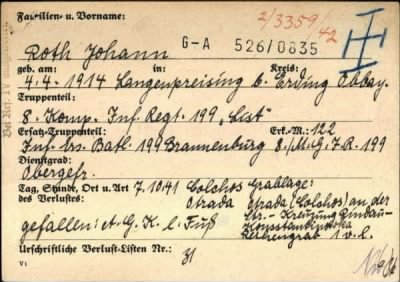 Familien- u. Vorname:
2/3359/42
Roth Johann
G-A 526/0835
geb. am: in: Kreis:
4.4.1914 Langenpreising b. Erding Obbay.
Truppenteil:
8. Komp. Inf. Regt. 199 „List"
Ersatz-Truppenteil: Erk.-M.: 122
Inf. Ers. Batl. 199 Brannenburg 8./M.G.J.R. 199
Dienstgrad:
Obergefr.
Tag, Stunde, Ort u. Art 7.10.41 Colchos Grablage:
des Verlustes: Strada Strada (Colchos) an der
gefallen: A.G.K. l. Fuß Str.- Kreuzung
Reihengrab 1 v. l.
Urschriftliche Verlust-Listen Nr.: 31
V 1